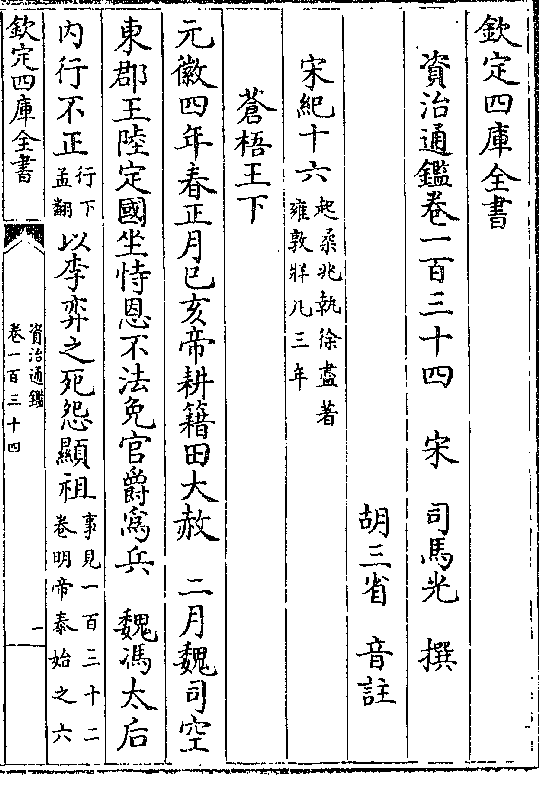 欽定四庫全書
資治通鑑卷一百三十四 宋 司馬光 撰
胡三省 音註
宋紀十六起柔兆執徐盡著雍敦牂凡三年
蒼梧王下
元徽四年春正月己亥帝耕籍田大赦 二月魏司空
東郡王陸定國坐恃恩不法免官爵為兵 魏馮太后
內行不正行下孟翻以李弈之死怨顯祖事見一百三十二卷明帝泰始之六
欽定四庫全書
資治通鑑
卷一百三十四
一